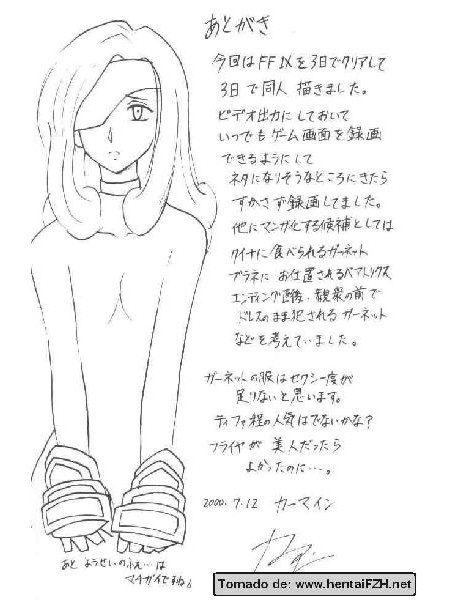 あとがき
今回はFFIXを3日でクリアして
3日で同人描きました。
ビデオ出力にしておいて
いつでもゲーム画面を録画
できるようにして
ネタになりそうなところにきたら
すかさず録画してました。
他にマンガ化する候補としては
クイナに食べられるガーネット
ブラネにお仕置されるベアトリクス
エンディング直後、観衆の前で
ドレスのまま犯されるガーネット
などを考えていました。
ガーネットの服はセクシー度が
足りないと思います。
ティファ程の人気はでないかな?
フライヤが美人だったら
よかったのに…。
2000.7.12 カーマイン
あと ようせいの
マチガイですね。
Tomado de: www.hentaiFZH.net